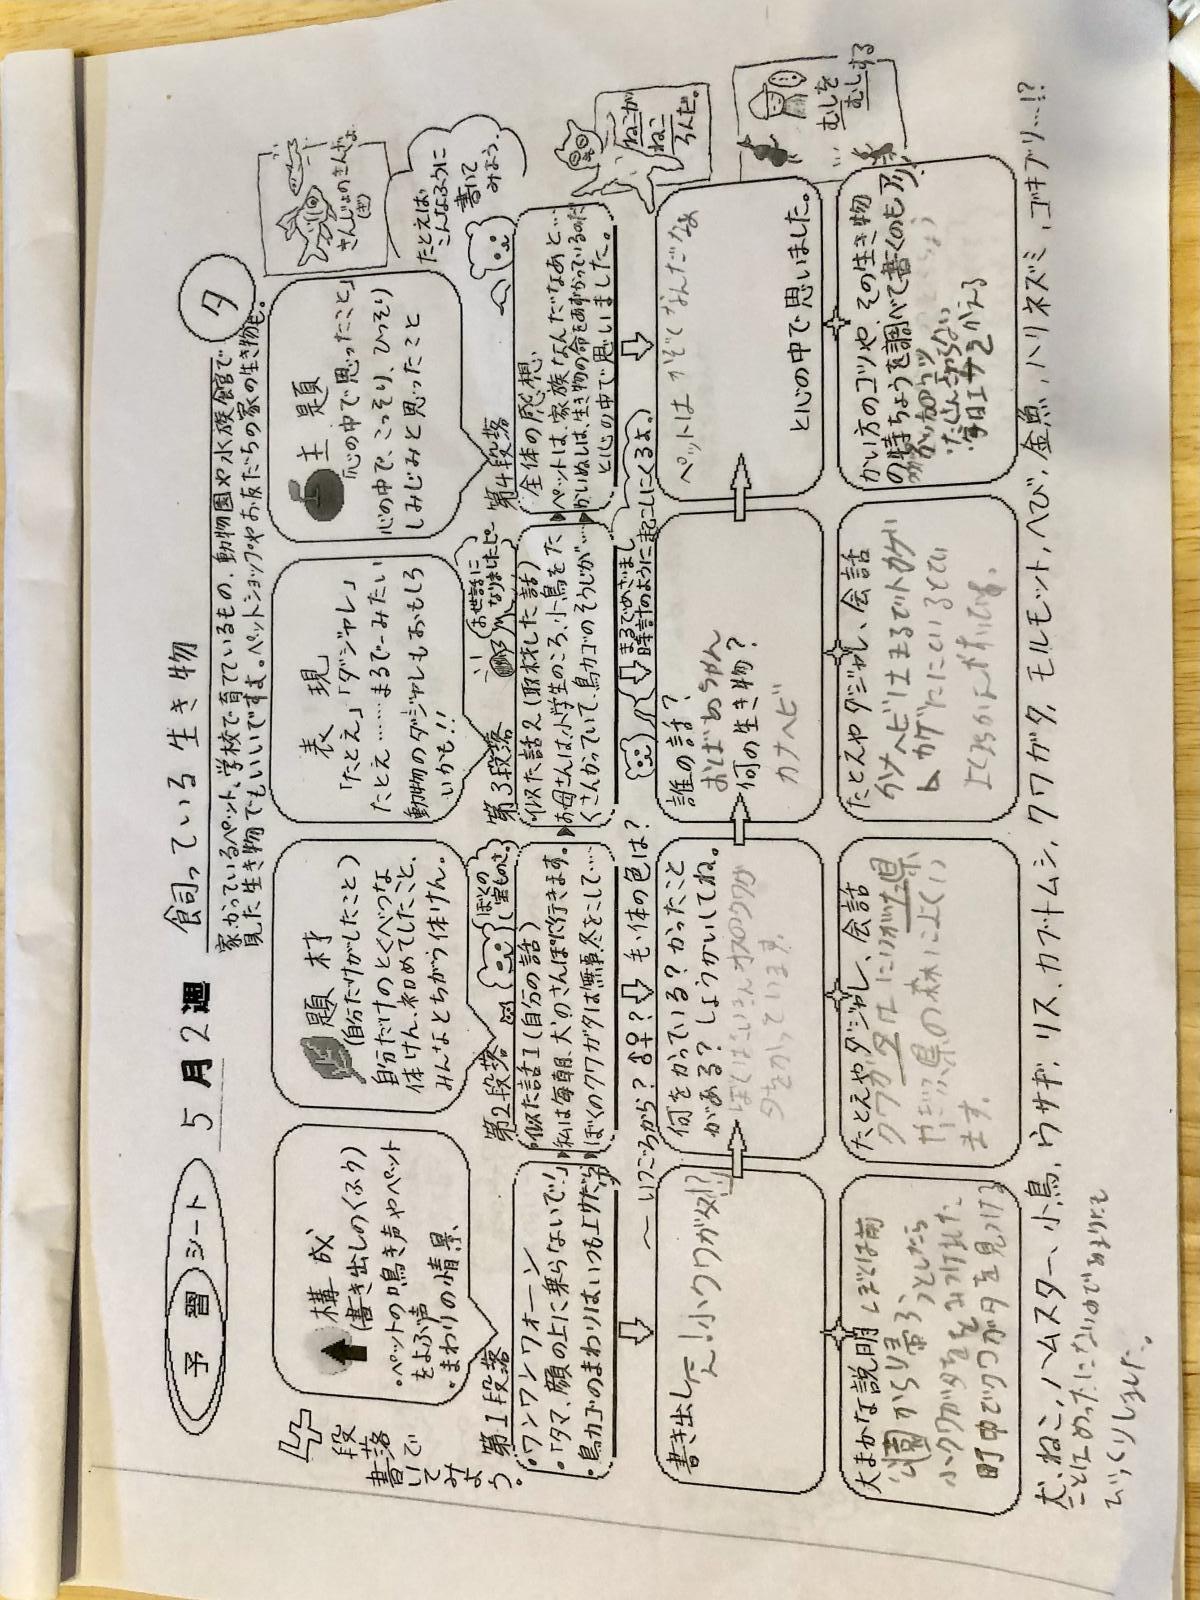 予習シート
5月2週
飼っている生き物
タ
家でかっているペット、学校で育てているもの、動物園や水族館で
見た生き物でもいいですよ。ペットショップやお友だちの家の生き物も。
4段落で
書いてみよう。
構成
(書き出しのくふう)
・ペットの鳴き声やペット
をよぶ声
・まわりの情景、
題材
(自分だけがしたこと)
自分だけのとくべつな
体けん、初めてしたこと、
みんなとちがう体けん。
表現
「たとえ」「ダジャレ」
たとえ……まるで〜みたい
動物のダジャレもおもしろ
いかも!!
主題
「心の中で思ったこと」
心の中で、こっそり、ひっそり
しみじみと思ったこと
さんじょのきんぎょ
たとえば
こんなふうに
書いて
みよう。
第1段落
・ワンワンワオーン
・「タマ、顔の上に乗らないで!」
・鳥カゴのまわりはいつも
第2段落
似た話1(自分の話)
私は毎朝、犬のさんぽに行きます。
ぼくのクワガタは無事冬をこして……
ぼくの
宝もの
第3段落
似た話2(取材した話)
お母さんは、小学生のころ、小鳥をた
くさんかっていて、鳥カゴのそうじが……
お世話に
なりました
第4段落
全体の感想
ペットは、家族なんだなあと…
かいぬしは、生き物の命をあずかっているのだ
と心の中で思いました。
ねこが
ねこ
ろんだ。
むしを
むしする
〜いつごろから?
毛・体の色は?
まるでめざまし
時計のように起こしにくるよ。
書き出し
え!小クワガタ!?
何をかっている?かったこと
がある?しょうかいしてね。
ぼくはいま
タをかっています
誰の話?
おばあちゃん
何の生き物?
カナヘビ
ペットはかぞくなんだなぁ
と心の中で思いました。
大まかな説明
ぼくは前
公園から帰ろうとしたら
小クワガタをみつけました
町中でクワガタを見つける
ことはめったにないのであまりにも
びっくりしました。
たとえやダジャレ、会話
クワガタは
の森によくい
ます。
たとえやダジャレ、会話
カナヘビはまるでトカゲ
かい方のコツや、その生き物
の持ちょうを調べて書くのもアリ
毎日エサをかえる
犬、ねこ、ハムスター、小鳥、ウサギ、リス、カブトムシ、クワガタ、モルモット、ヘび、金魚、ハリネズミ、ゴキブリ…!?